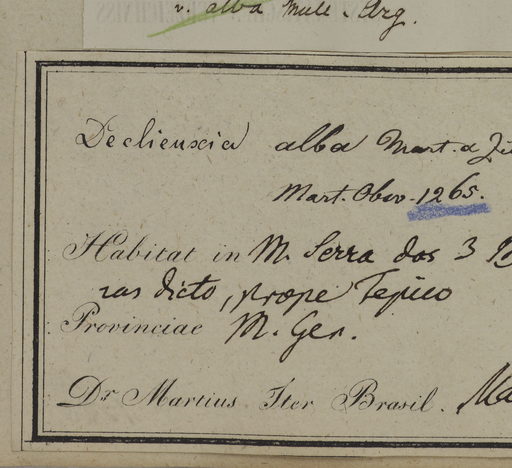 v. alba Muell-Arg.
Declieuxia alba Mart. & Zu
Mart. Obsv. 1265.
Habitat in M. Serra dos 3
ras dicto, prope Tejuco
Provinciae M. Ger.
Dr Martius Iter Brasil. Ma